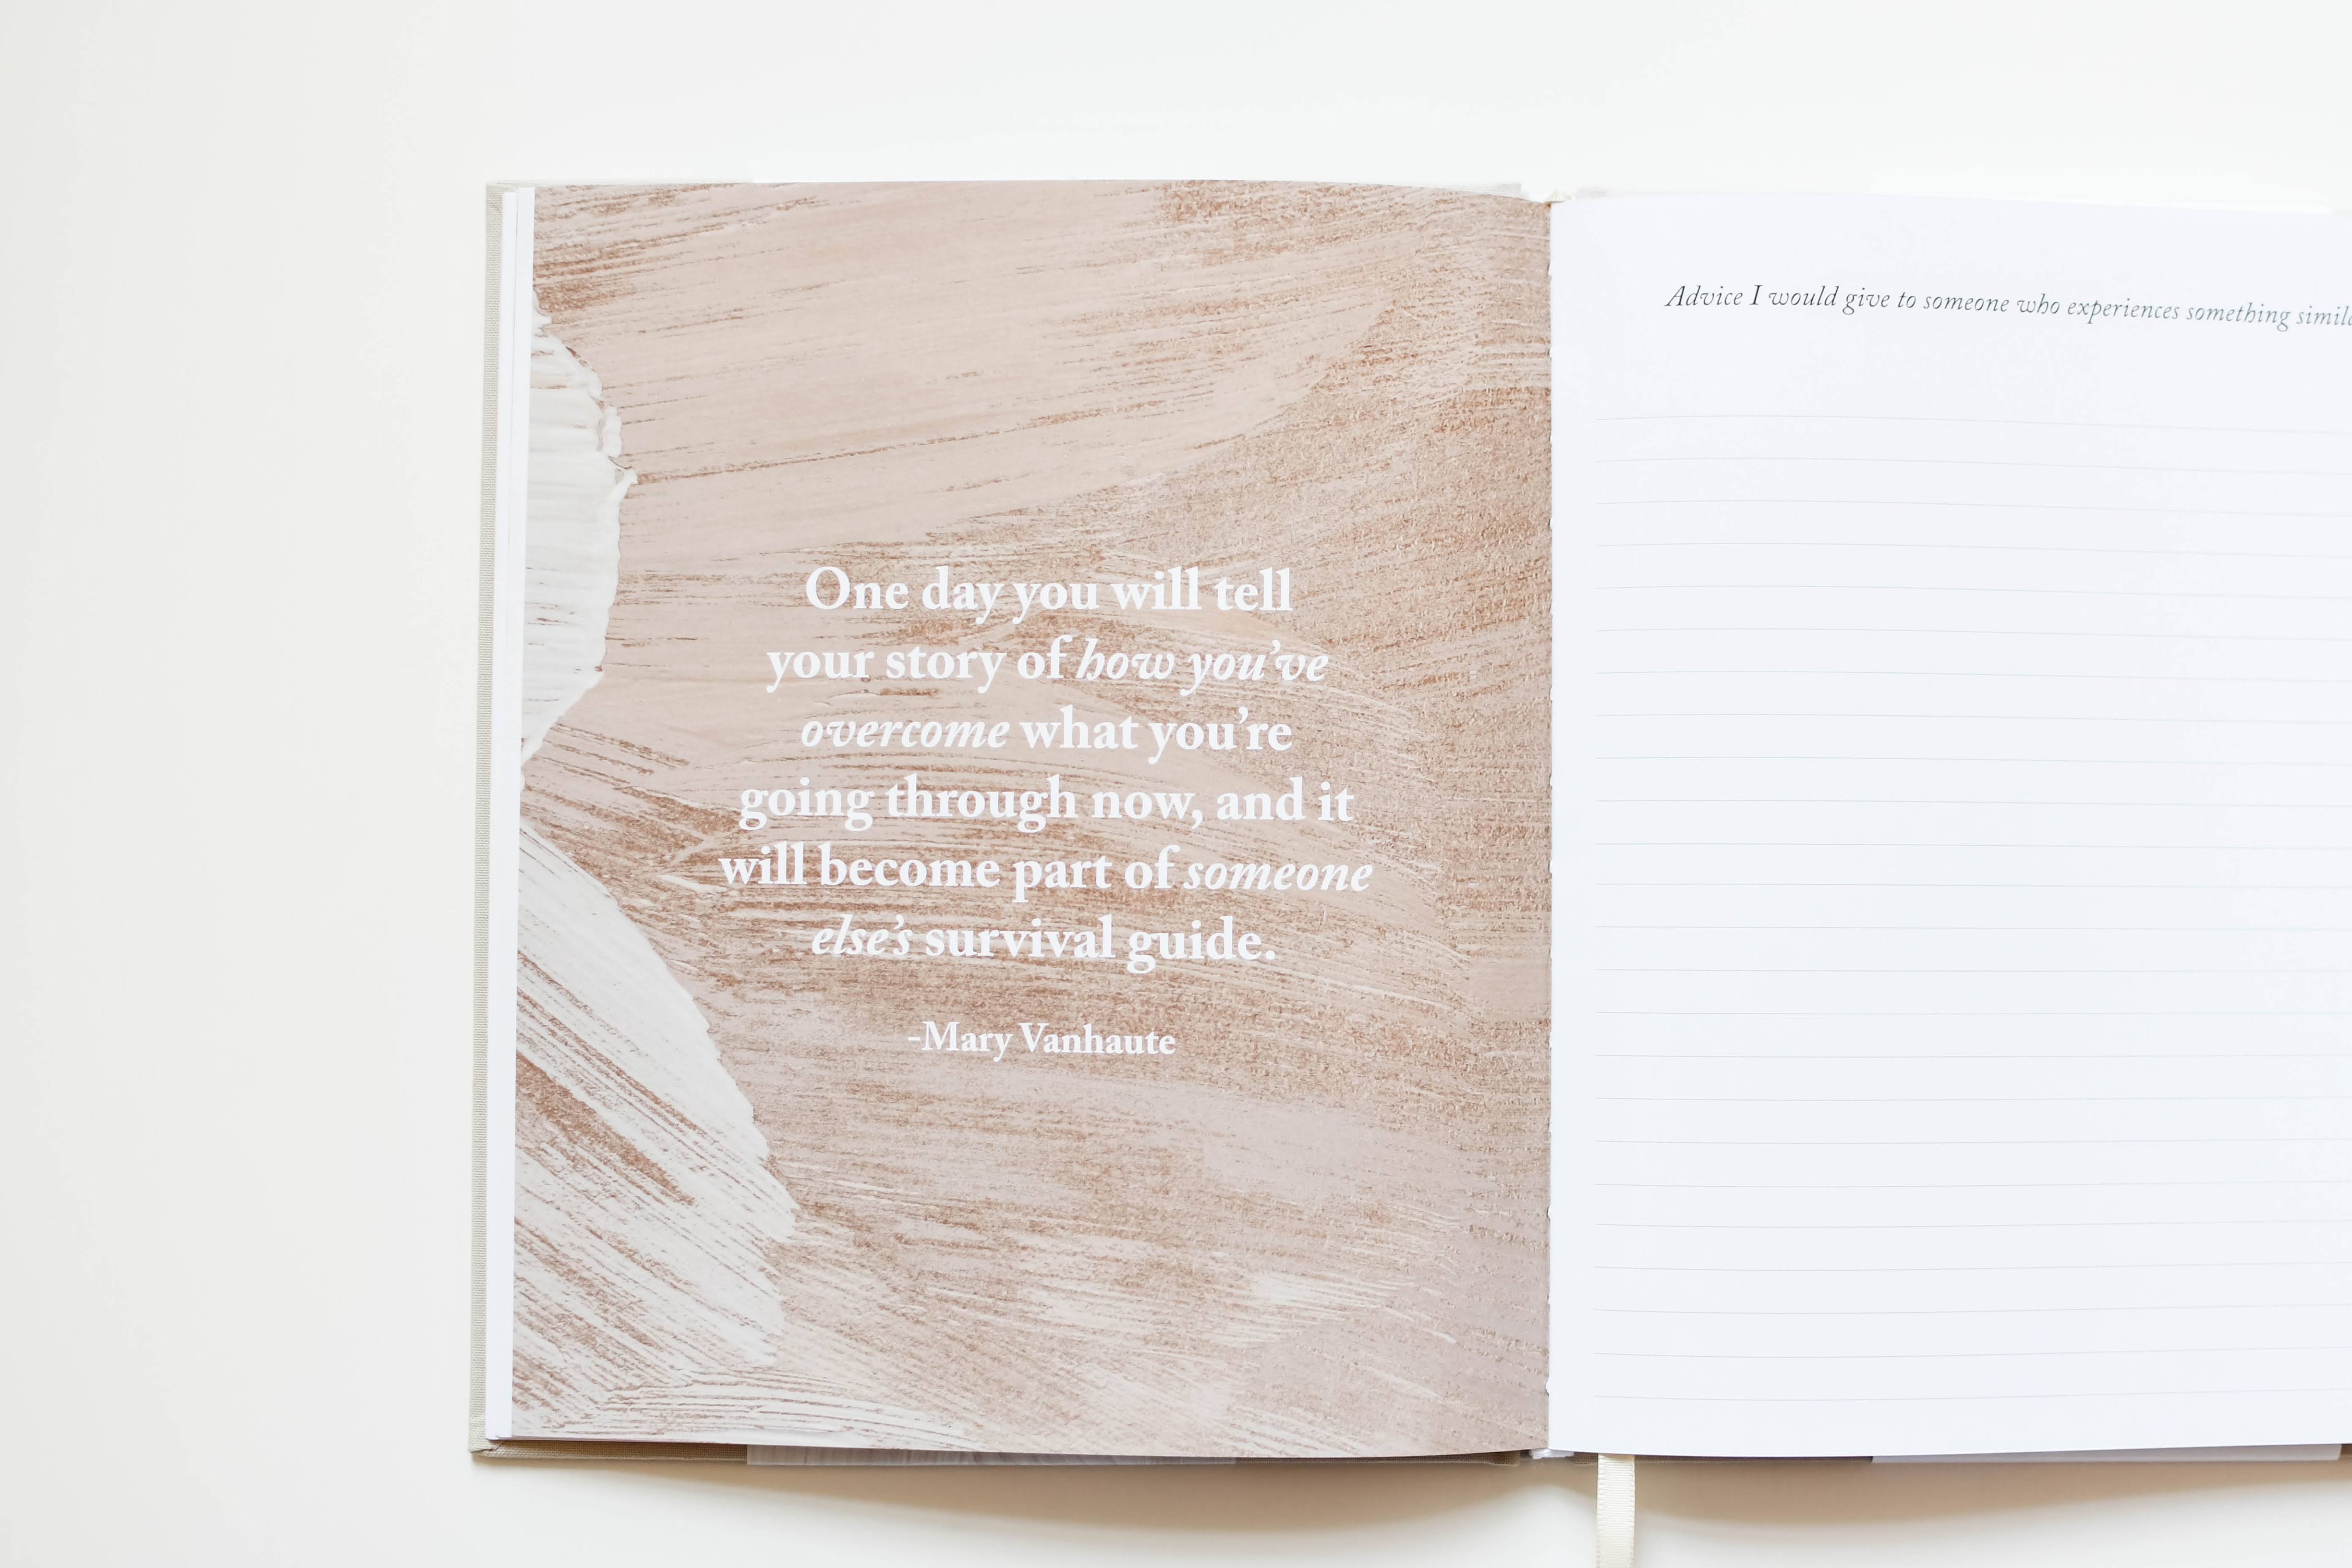 One day you will tell
your story of how you've
overcome what you're
going through now, and it
will become part of someone
else's survival guide.
-Mary Vanhaute
Advice I would give to someone who experiences something